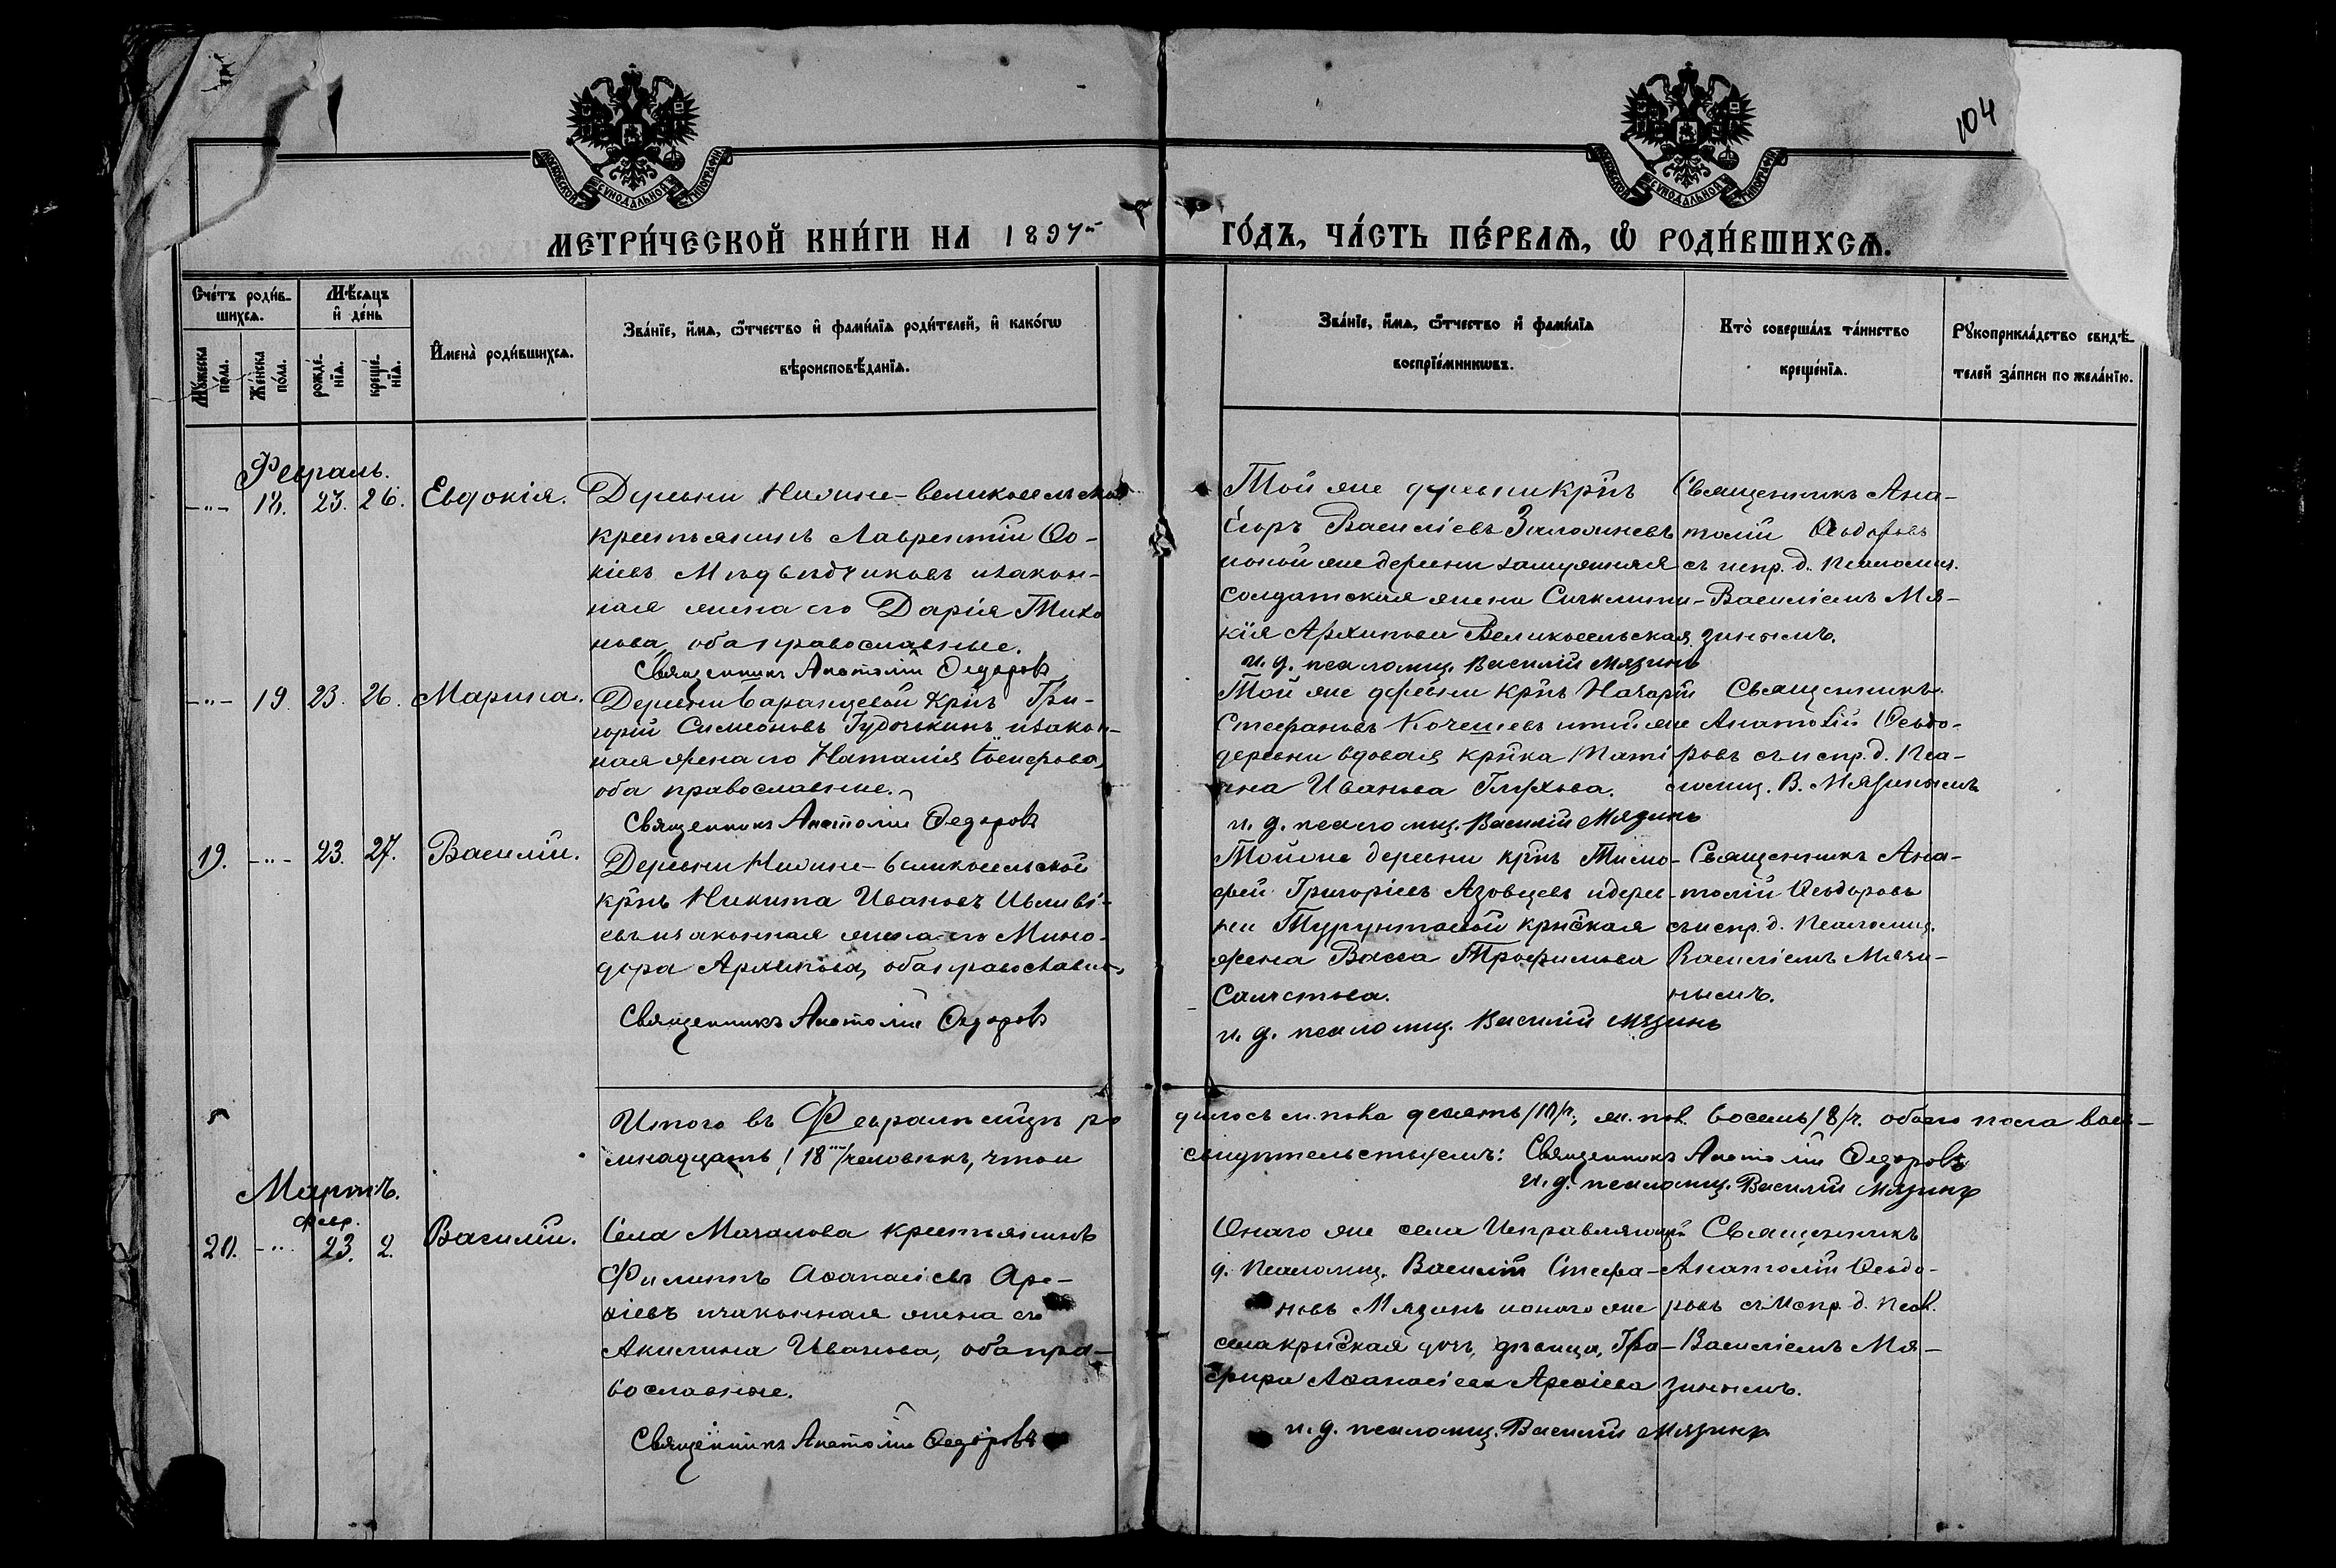 104
МОСКОВСКОЙ СѴНОДАЛЬНОЙ ТИПОГРАФИИ
МОСКОВСКОЙ СѴНОДАЛЬНОЙ ТИПОГРАФИИ
МЕТРИ́ЧЕСКОЙ КНИ́ГИ НА 1897
ГО́ДЪ, ЧА́СТЬ ПЕ́РВАѦ, Ѡ҆ РОДИ́ВШИХСѦ.
Сче́тъ роди́вшихсѧ.
Мꙋ́жеска по́ла.
Же́нска по́ла.
Мѣ́сѧцъ и҆ де́нь
рожде́нїѧ.
креще́нїѧ.
И҆мена̀ роди́вшихсѧ.
Зва́нїе, и҆́мѧ, ѻ҆́тчество и҆ фами́лїѧ роди́телей, и҆ како́гѡ
вѣроисповѣ́данїѧ.
Зва́нїе, и҆́мѧ, ѻ҆́тчество и҆ фами́лїѧ
воспрїе́мникѡвъ.
Кто̀ соверша́лъ та́инство
креще́нїѧ.
Рꙋкоприкла́дство свидѣ́-
телей за́писи по жела́нїю.
Февраль.
-"- 18. 23. 26. Евдокія.
Деревни Нижне-Великосельской
крестьянинъ Лаврентій Фо-
кіевъ и закон-
ная жена его Дарія Тихо
нова, оба православные.
Священникъ Анатолій Ѳедоровъ
Той же деревни кр͠нъ
Егоръ Василіевъ
и оной же деревни замужняя
солдатская жена Синклити-
кія Архипова Великосельская
и. д. псаломщ. Василій Мязинъ
Священникъ Ана-
толій Ѳеодоровъ
съ испр. д. псаломщ.
Василіемъ Мя-
зинымъ.
-"- 19. 23. 26. Марина.
Деревни кр͠нъ Гри-
горій Симеоновъ и закон-
ная жена его Наталія
оба православные.
Священникъ Анатолій Ѳедоровъ
Той же деревни кр͠нъ
Стефановъ и той же
деревни вдовая кр͠нка Тати
ана Иванова
и. д. псаломщ. Василій Мязинъ
Священникъ
Анатолій Ѳеодо-
ровъ съ испр. д. пса-
ломщ. В. Мязинымъ
19. -"- 23. 27. Василій.
Деревни Нижне-Великосельской
кр͠нъ Никита Ивановъ
и законная жена его Мино-
дора Архипова, оба православн.
Священникъ Анатолій Ѳедоровъ
Той же деревни кр͠нъ Тимо-
фей Григоріевъ Азовцевъ и дерев-
ни Турунтаевой кр͠нская
жена Васса Трофимова
и. д. псаломщ. Василій Мязинъ
Священникъ Ана-
толій Ѳеодоровъ
съ испр. д. псаломщ.
Василіемъ Мязи-
нымъ.
Итого въ Февралѣ м͠цѣ ро
дилось м. пола десять /10/ч, ж. пол. восемь /8/ч. обоего пола вось-
мнадцать /18/ человѣкъ, что и
свидѣтельствуемъ: Священникъ Анатолій Ѳедоровъ
и. д. псаломщ. Василій Мязинъ
Мартъ.
февр.
20. -"- 23. 2. Василій.
Села Мачалова крестьянинъ
Филиппъ Аѳанасіевъ Аре-
ѳіевъ и законная жена его
Акилина Иванова, оба пра-
вославные.
Священникъ Анатолій Ѳедоровъ
Онаго же села Исправляющій
д. псаломщ. Василій Стефа-
новъ Мязинъ и оного же
села кр͠нская дочь, дѣвица,
Аѳанасіева Ареѳіева
и. д. псаломщ. Василій Мязинъ
Священникъ
Анатолій Ѳеодо-
ровъ съ испр. д. псал.
Василіемъ Мя-
зинымъ.